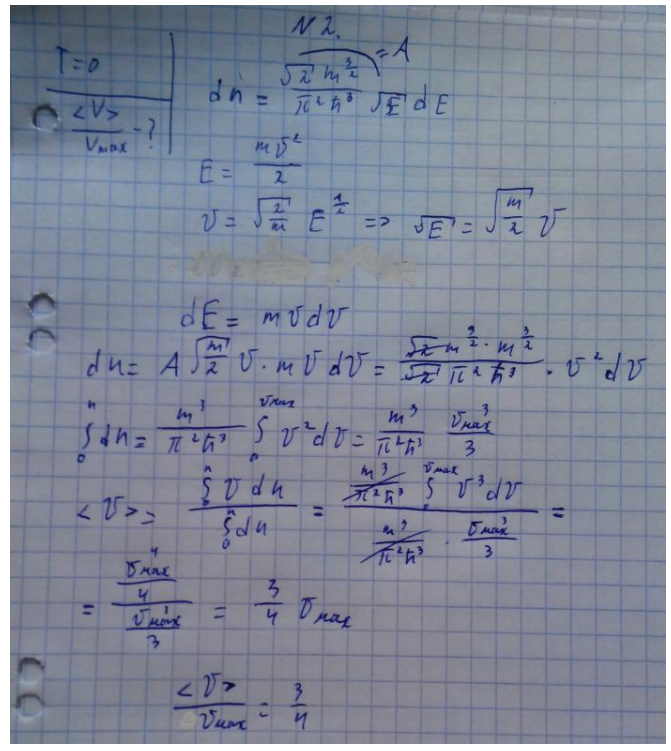 N 2.
T=0
<V>/Vmax - ?
dn = (√2 m^(3/2))/(π²ħ³) √E dE
= A
E = mv²/2
v = √(2/m) E^(1/2) => √E = √(m/2) v
dE = mv dv
dn = A √(m/2) v · mv dv = (√2 m^(3/2) · m^(3/2))/(√2 π²ħ³) · v² dv
∫₀ⁿ dn = m³/(π²ħ³) ∫₀^(vmax) v² dv = m³/(π²ħ³) vmax³/3
<v> = (∫₀ⁿ v dn)/(∫₀ⁿ dn) = (m³/(π²ħ³) ∫₀^(vmax) v³ dv)/(m³/(π²ħ³) · vmax³/3) =
= (vmax⁴/4)/(vmax³/3) = 3/4 vmax
<v>/vmax = 3/4